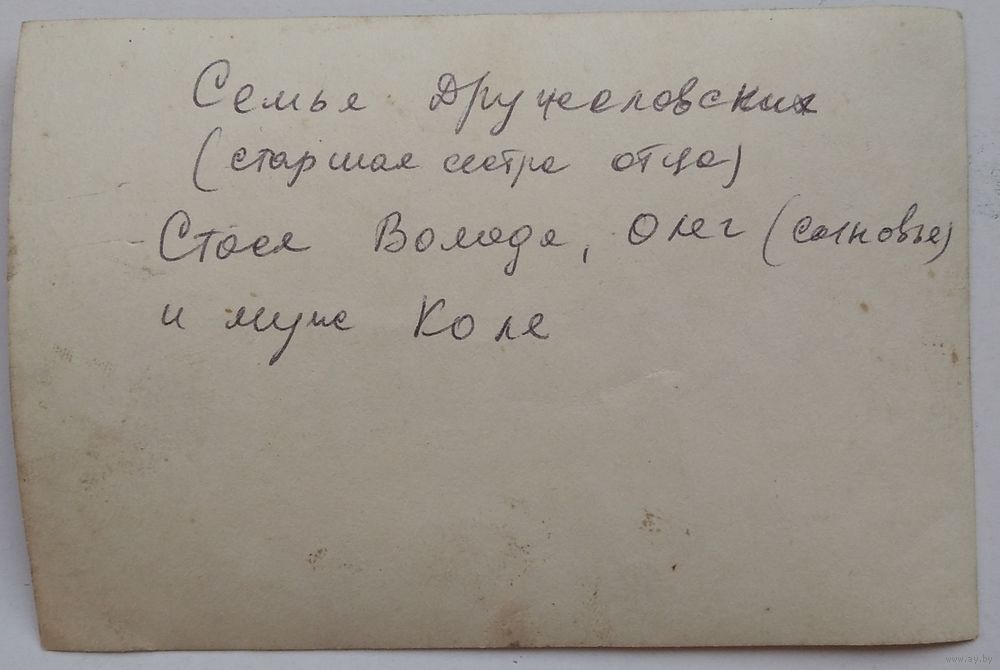 Семья Дружеловских
(старшая сестра отца)
Стася Володя, Олег (сыновья)
и муж Коля
www.ay.by